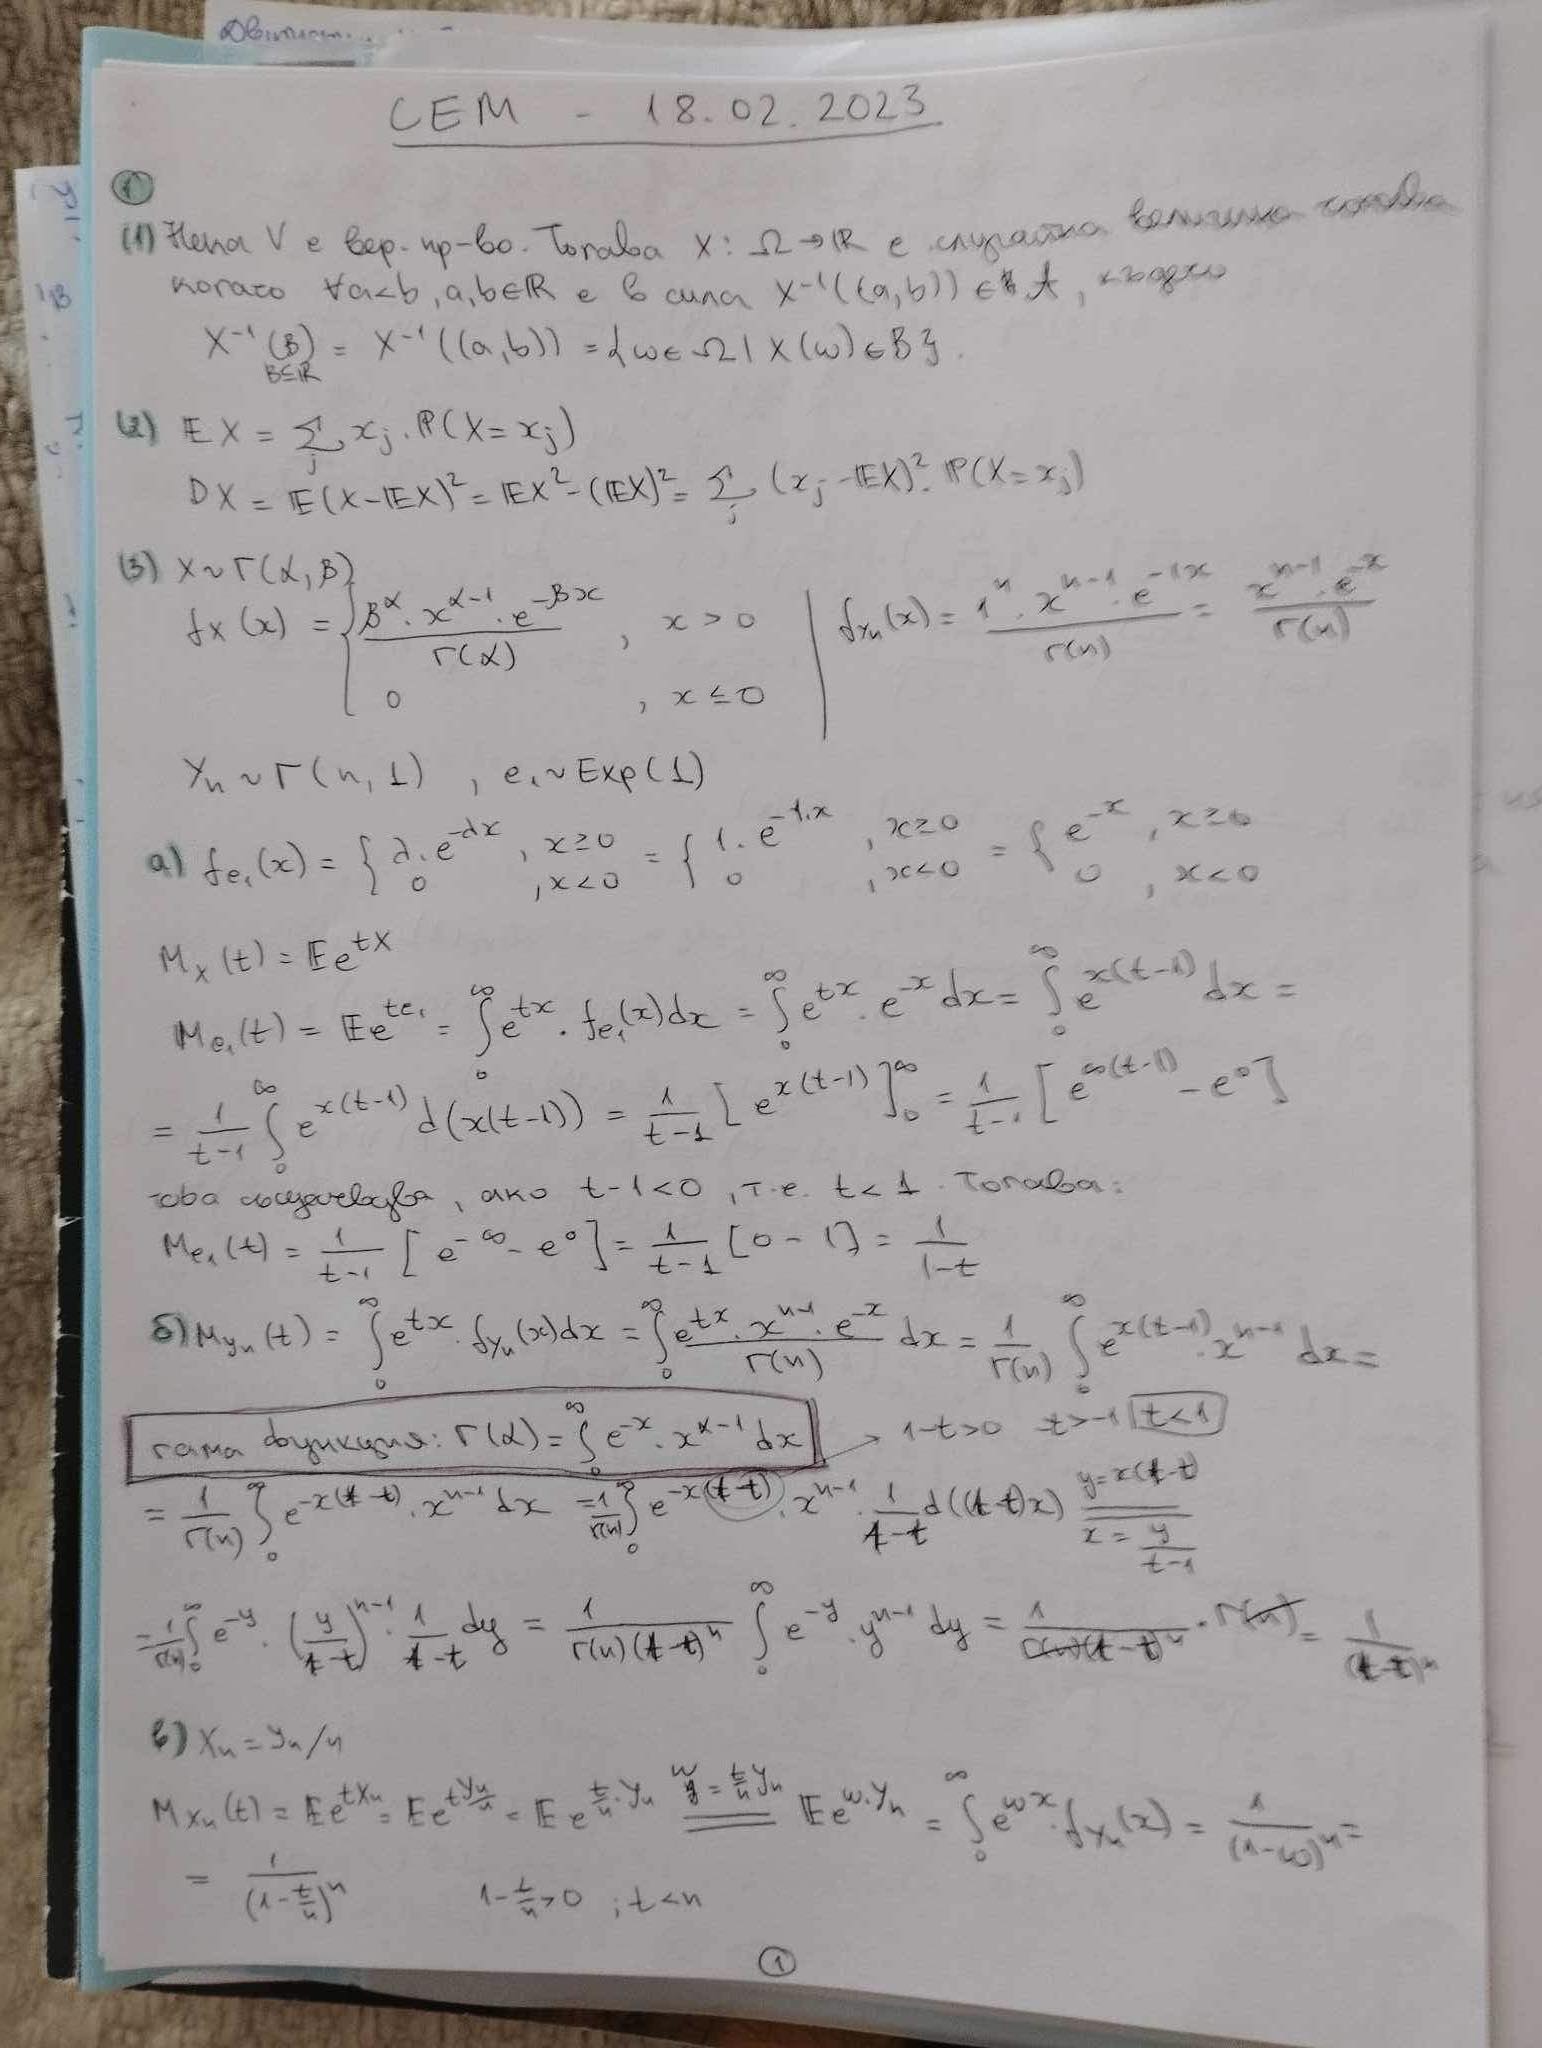 СЕМ - 18.02.2023
①
(1) Нека V е вер. пр-во. Тогава X: Ω → ℝ е случайна величина тогава
когато ∀a<b, a,b∈ℝ е в сила X⁻¹((a,b)) ∈ A, където
X⁻¹(B) = X⁻¹((a,b)) = {ω ∈ Ω | X(ω) ∈ B}.
B⊆ℝ
(2) EX = ∑_j x_j . P(X = x_j)
DX = E(X-EX)² = EX² - (EX)² = ∑_j (x_j - EX)² . P(X = x_j)
(3) X ~ Γ(α, β)
f_X(x) = { β^α . x^(α-1) . e^(-βx) / Γ(α) , x > 0 | f_Xn(x) = 1^n . x^(n-1) . e^(-1x) / Γ(n) = x^(n-1) . e^(-x) / Γ(n)
0 , x ≤ 0
Y_n ~ Γ(n, 1) , e₁ ~ Exp(1)
а) f_e₁(x) = { λ . e^(-λx) , x ≥ 0 = { 1 . e^(-1.x) , x ≥ 0 = { e^(-x) , x ≥ 0
0 , x < 0 0 , x < 0 0 , x < 0
M_X(t) = E e^(tX)
M_e₁(t) = E e^(te₁) = ∫₀^∞ e^(tx) . f_e₁(x)dx = ∫₀^∞ e^(tx) . e^(-x) dx = ∫₀^∞ e^(x(t-1)) dx =
= 1/(t-1) ∫₀^∞ e^(x(t-1)) d(x(t-1)) = 1/(t-1) [e^(x(t-1))]₀^∞ = 1/(t-1) [e^(∞(t-1)) - e⁰]
това съществува, ако t-1<0, т.е. t<1. Тогава:
M_e₁(t) = 1/(t-1) [e^(-∞) - e⁰] = 1/(t-1) [0 - 1] = 1/(1-t)
б) M_Yn(t) = ∫₀^∞ e^(tx) . f_Yn(x)dx = ∫₀^∞ e^(tx) . x^(n-1) . e^(-x) / Γ(n) dx = 1/Γ(n) ∫₀^∞ e^(x(t-1)) . x^(n-1) dx =
гама функция: Γ(α) = ∫₀^∞ e^(-x) . x^(α-1) dx → 1-t>0 t>-1 t<1
= 1/Γ(n) ∫₀^∞ e^(-x(1-t)) . x^(n-1) dx = 1/Γ(n) ∫₀^∞ e^(-x(1-t)) . x^(n-1) . 1/(1-t) d((1-t)x) y = x(1-t)
x = y/(t-1)
= 1/Γ(n) ∫₀^∞ e^(-y) . (y/(1-t))^(n-1) . 1/(1-t) dy = 1/(Γ(n)(1-t)^n) ∫₀^∞ e^(-y) . y^(n-1) dy = 1/(Γ(n)(1-t)^n) . Γ(n) = 1/(1-t)^n
в) X_n = Y_n/n
M_Xn(t) = E e^(tX_n) = E e^(t Y_n/n) = E e^(t/n . Y_n) w = t/n Y_n E e^(w.Y_n) = ∫₀^∞ e^(wx) . f_Yn(x) = 1/(1-w)^n =
= 1/(1 - t/n)^n 1 - t/n > 0 ; t < n
①